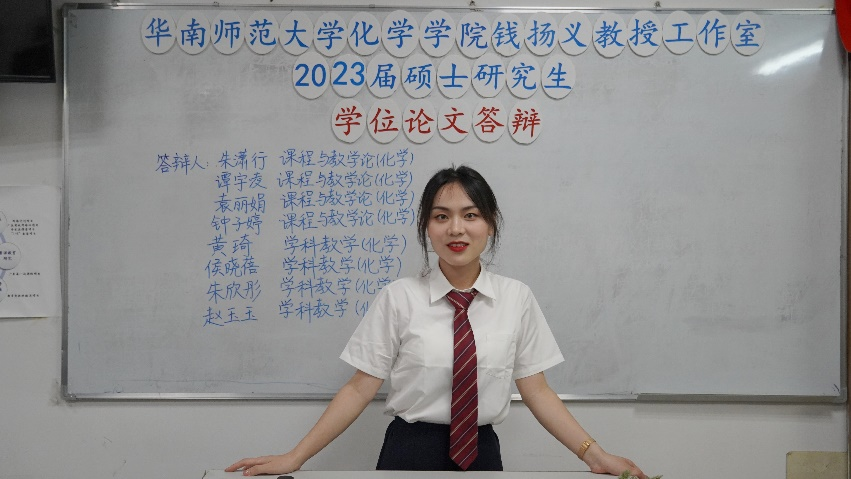 华南师范大学化学学院钱扬义教授工作室
2023届硕士研究生
学位论文答辩
答辩人：朱潇行 课程与教学论(化学)
谭宇凌 课程与教学论(化学)
袁丽娟 课程与教学论(化学)
钟子婷 课程与教学论(化学)
黄琦 学科教学(化学)
侯晓蓓 学科教学(化学)
朱欣彤 学科教学(化学
赵玉玉 学科教学(化